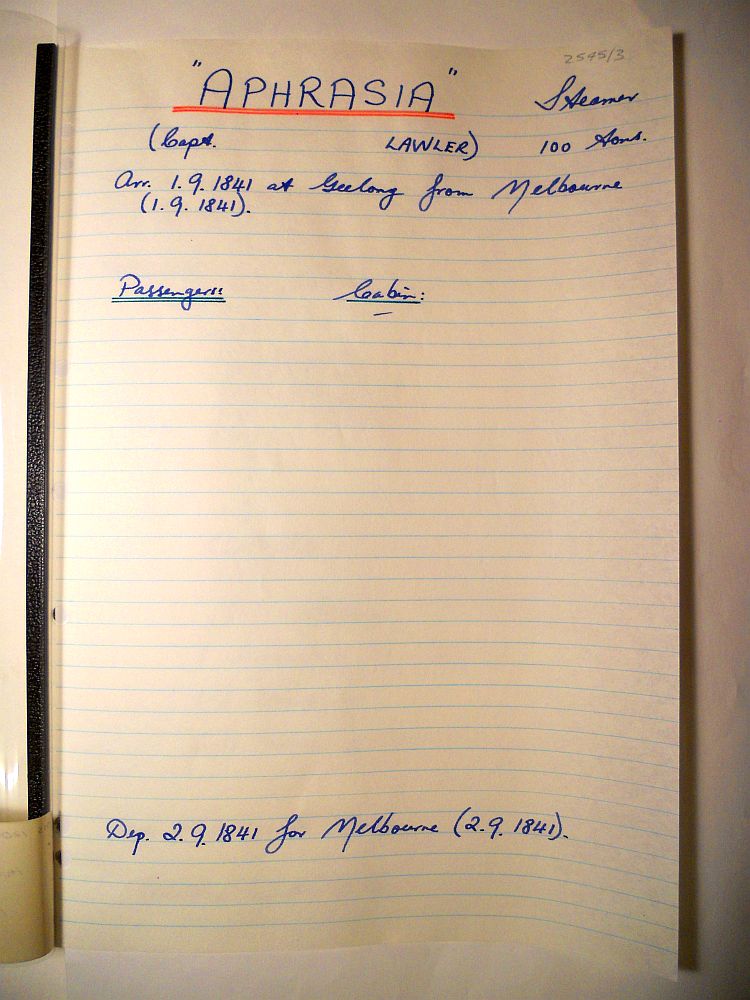 2545/3
"APHRASIA" Steamer
(Capt. LAWLER) 100 tons.
Arr. 1.9.1841 at Geelong from Melbourne
(1.9.1841).
Passengers: Cabin:
–
Dep. 2.9.1841 for Melbourne (2.9.1841).